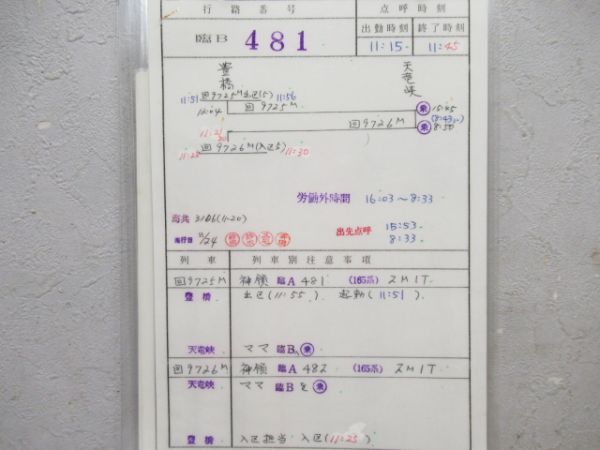 行路番号 点呼時刻
臨B 481 出勤時刻 終了時刻
11:15 11:45
豊橋 天竜峡
11:51 回9725M出区(5) 11:56
12:04 回9725M 乗 15:45
回9726M 乗 8:50
回9726M(入区5) 11:30
11:25
労働外時間 16:03~8:33
出先点呼 15:53
8:33
11/24
列車 列車別注意事項
回9725M 神領 臨A 481 (165系) 2M1T
豊橋 出区(11:55). 起動(11:51).
天竜峡 ママ 臨B 乗
回9726M 神領 臨A 482 (165系) 2M1T
天竜峡 ママ 臨Bを 乗
豊橋 入区担当 入区(11:25)